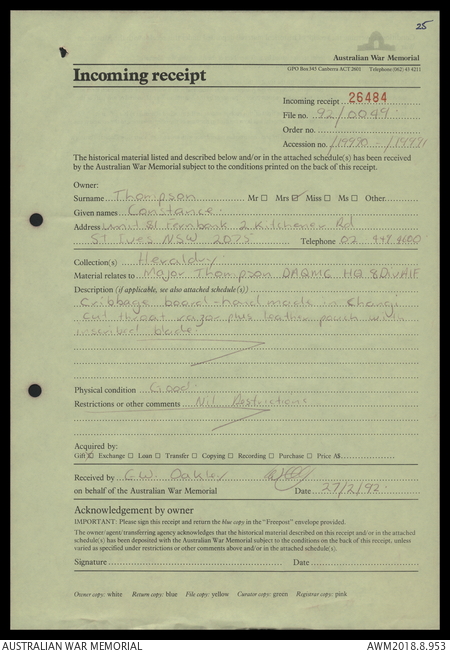 25
Australian War Memorial
GPO Box 345 Canberra ACT 2601 Telephone (062) 43 4211
Incoming receipt
Incoming receipt 26484
File no. 92/0049
Order no.
Accession no. /19990 - /19991
The historical material listed and described below and/or in the attached schedule(s) has been received
by the Australian War Memorial subject to the conditions printed on the back of this receipt.
Owner:
Surname Thompson Mr □ Mrs ☑ Miss □ Ms □ Other
Given names Constance
Address Unit 81 Fernbank 2 Kitchener Rd
ST Ives NSW 2075 Telephone 02
Collection(s) Heraldry
Material relates to Major Thompson DAQMG HQ 8DivAIF
Description (if applicable, see also attached schedule(s))
Cribbage board - hand made in Changi
Cut throat razor plus leather pouch with
inscribed blade
Physical condition Good
Restrictions or other comments Nil Restrictions
Acquired by:
Gift ☒ Exchange □ Loan □ Transfer □ Copying □ Recording □ Purchase □ Price A$
Received by C.W. Oakley
on behalf of the Australian War Memorial Date 27/2/92
Acknowledgement by owner
IMPORTANT: Please sign this receipt and return the blue copy in the "Freepost" envelope provided.
The owner/agent/transferring agency acknowledges that the historical material described on this receipt and/or in the attached
schedule(s) has been deposited with the Australian War Memorial subject to the conditions on the back of this receipt, unless
varied as specified under restrictions or other comments above and/or in the attached schedule(s).
Signature Date
Owner copy: white Return copy: blue File copy: yellow Curator copy: green Registrar copy: pink
AUSTRALIAN WAR MEMORIAL AWM2018.8.953